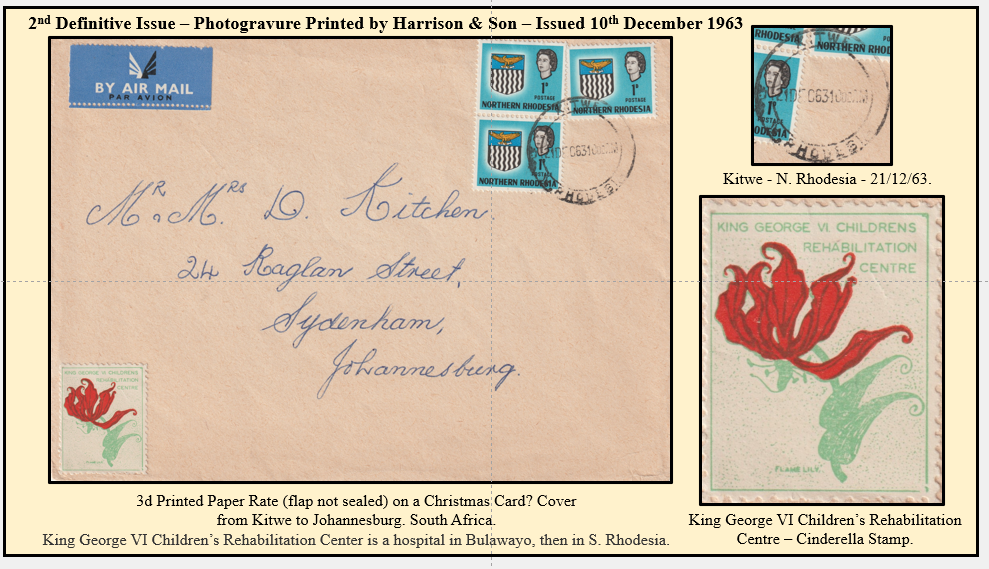 2nd Definitive Issue – Photogravure Printed by Harrison & Son – Issued 10th December 1963
BY AIR MAIL
PAR AVION
1D
POSTAGE
NORTHERN RHODESIA
1D
POSTAGE
NORTHERN RHODESIA
1D
POSTAGE
NORTHERN RHODESIA
KITWE
21DEC63
RHODESI
Mr & Mrs D. Kitchen.
24 Raglan Street,
Sydenham,
Johannesburg.
KING GEORGE VI CHILDRENS
REHABILITATION
CENTRE
FLAME LILY.
3d Printed Paper Rate (flap not sealed) on a Christmas Card? Cover
from Kitwe to Johannesburg. South Africa.
King George VI Children's Rehabilitation Center is a hospital in Bulawayo, then in S. Rhodesia.
RHODESIA
KITWE
NORTHERN RHOD
21DEC63
POSTAGE
ODESIA
RHODESI
Kitwe - N. Rhodesia - 21/12/63.
KING GEORGE VI CHILDRENS
REHABILITATION
CENTRE
FLAME LILY.
King George VI Children's Rehabilitation
Centre – Cinderella Stamp.